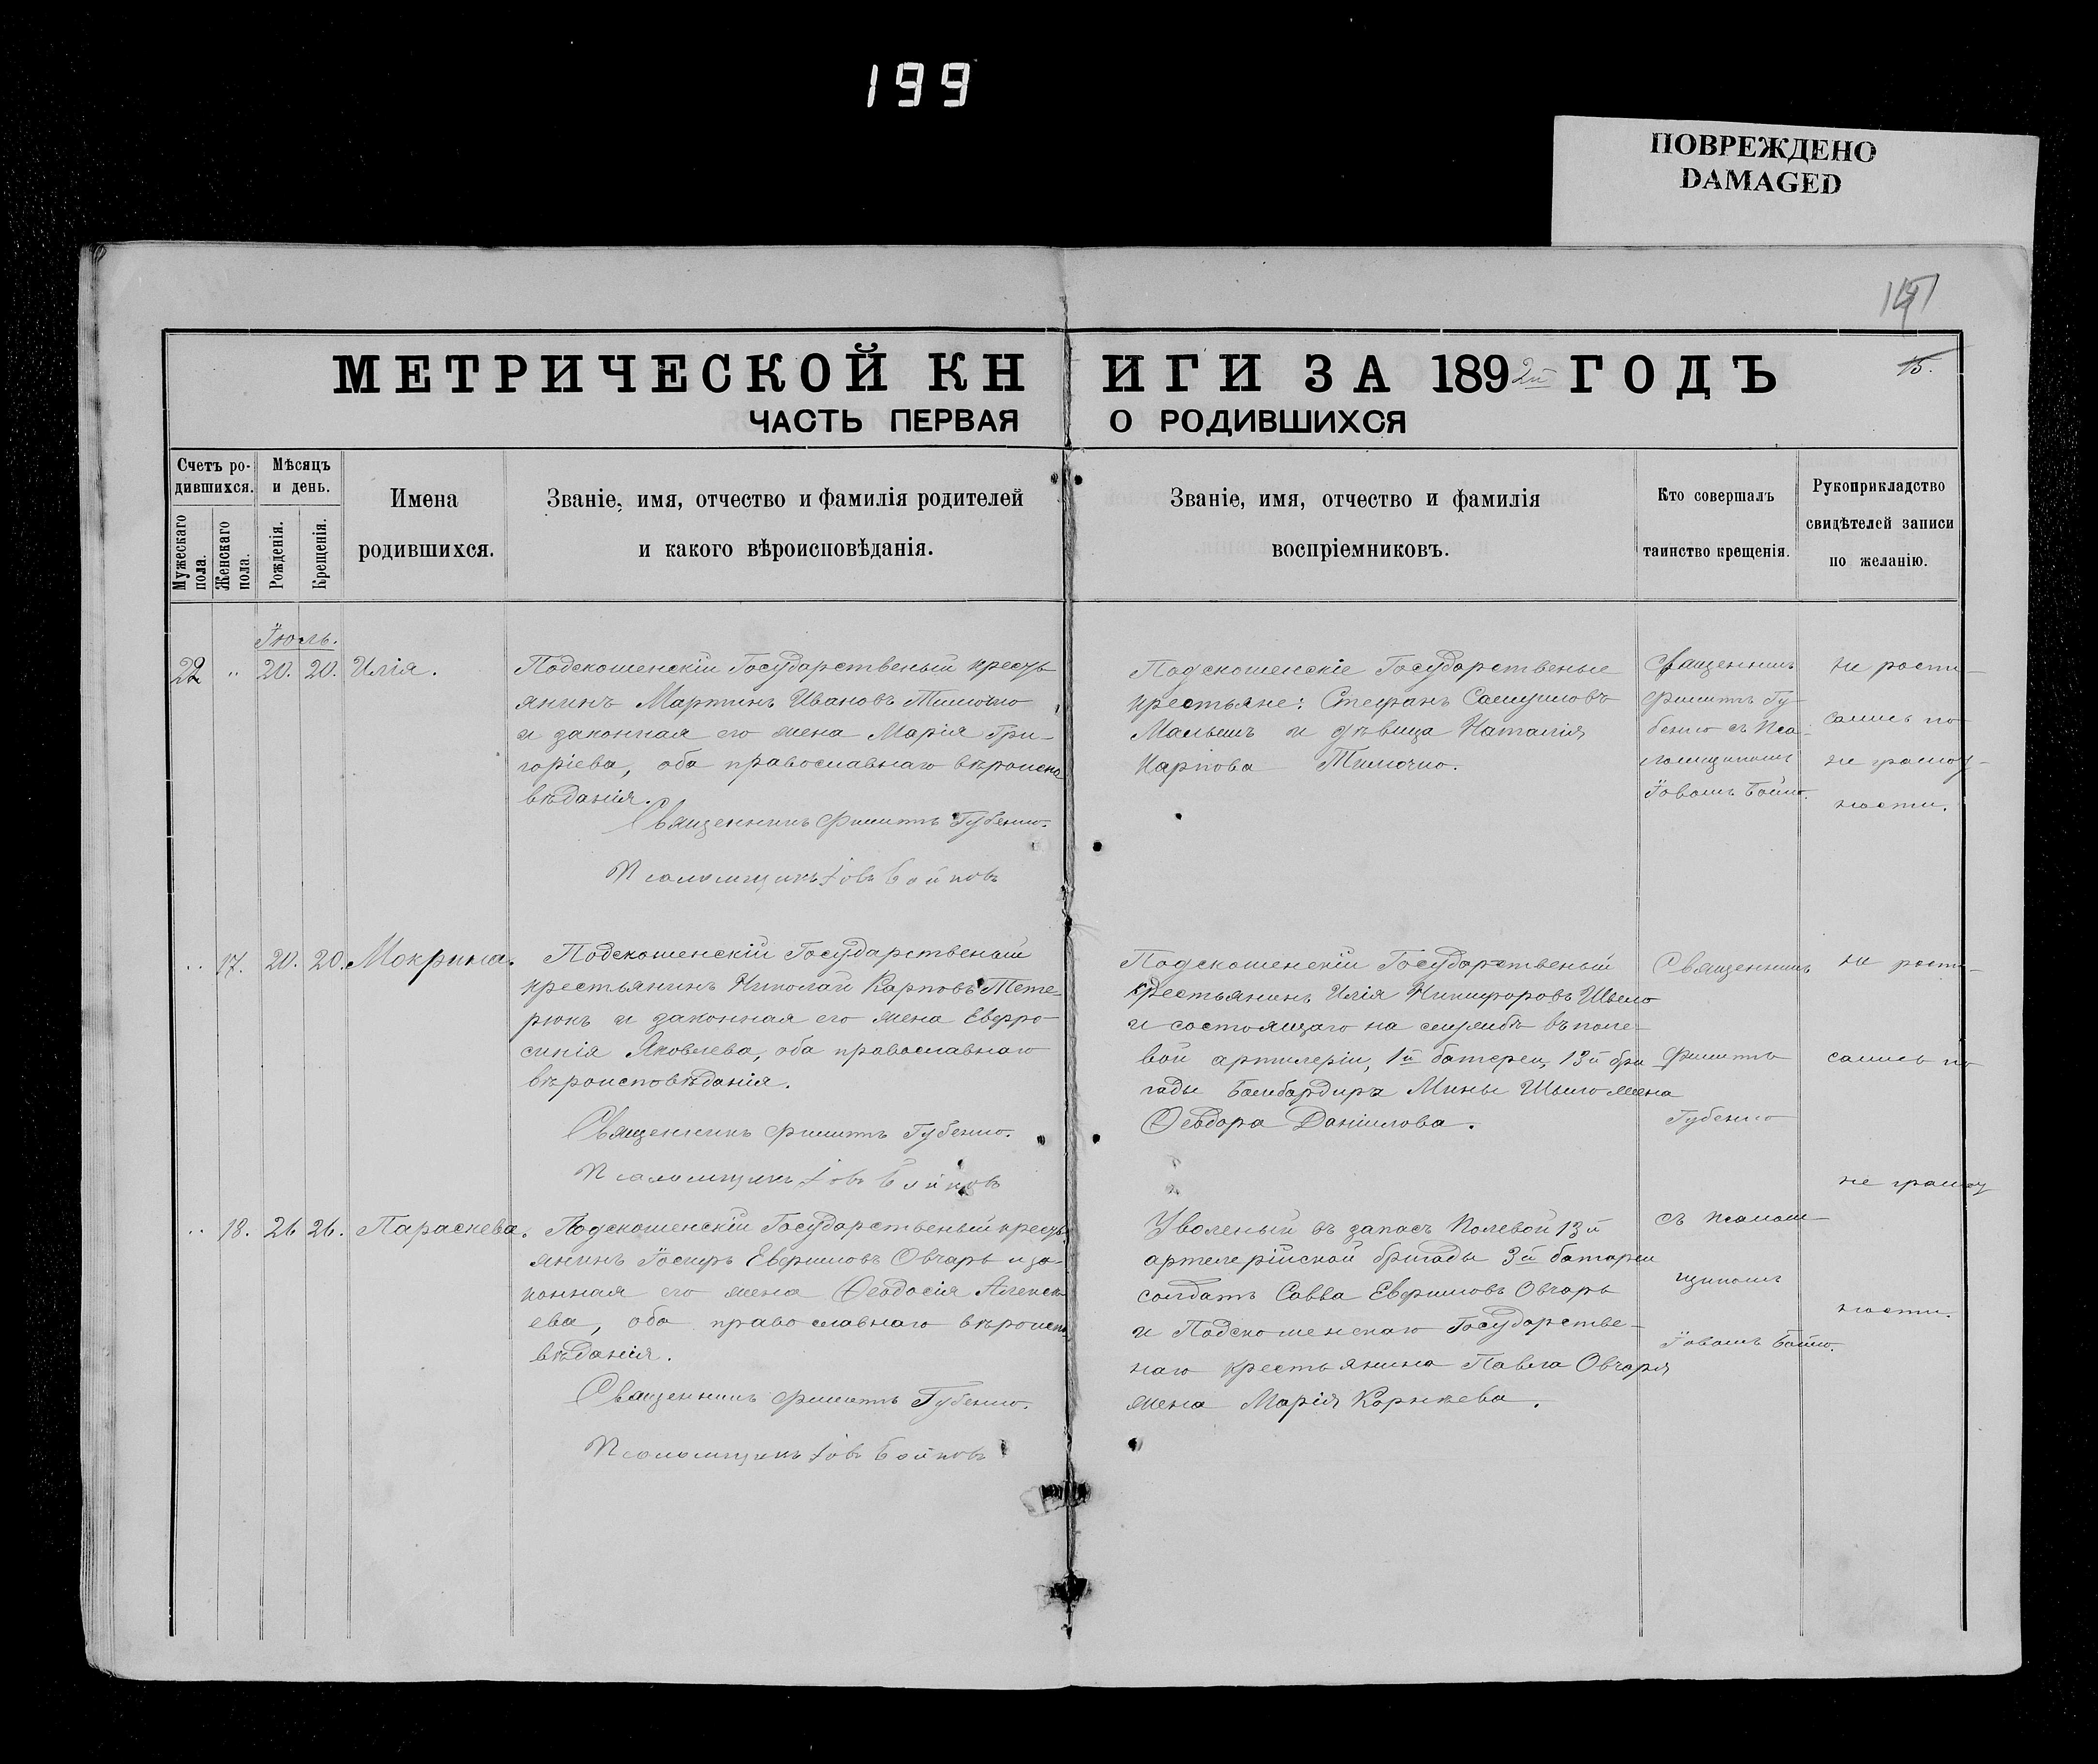 199
ПОВРЕЖДЕНО
DAMAGED
15.
МЕТРИЧЕСКОЙ КНИГИ ЗА 1892й ГОДЪ
ЧАСТЬ ПЕРВАЯ О РОДИВШИХСЯ
Счетъ родившихся.
Мужескаго пола.
Женскаго пола.
Мѣсяцъ и день.
Рожденія.
Крещенія.
Имена
родившихся.
Званіе, имя, отчество и фамилія родителей
и какого вѣроисповѣданія.
Званіе, имя, отчество и фамилія
воспріемниковъ.
Кто совершалъ
таинство крещенія.
Рукоприкладство
свидѣтелей записи
по желанію.
Іюль.
22 " 20. 20. Илія.
Подскошенскій Государственый кресть
янинъ Мартинъ Ивановъ Тимочко
и законная его жена Марія Гри-
горіева, оба православнаго вѣроиспо
вѣданія.
Священникъ Филиппъ Губенко.
Псаломщикъ Іовъ Бойковъ
Подскошенскіе Государственые
крестьяне: Стефанъ Самуиловъ
и дѣвица Наталія
Карпова Тимочко.
Священникъ
Филиппъ Гу
бенко съ Пса-
ломщикомъ
Іовомъ Бойко.
не роспи-
сались по
не грамот-
ности.
.. 17. 20. 20. Мокрина.
Подскошенскій Государственый
крестьянинъ Николай Карповъ Тете-
рюкъ и законная его жена Евфро-
синія Яковлева, оба православнаго
вѣроисповѣданія.
Священникъ Филиппъ Губенко.
Псаломщикъ Іовъ Бойковъ
Подскошенскій Государственый
крестьянинъ Илія Никифоровъ
и состоящаго на службѣ въ поле-
вой артилеріи, 1й батереи, 13й бри
гады Бомбардира Мины жена
Ѳеодора Даніилова.
Священникъ
Филиппъ
Губенко
не роспи-
сались по
не грамот
.. 18. 26 26. Параскева.
Подскошенскій Государственый кресть
янинъ Іосифъ Евфимовъ Овчаръ и за-
конная его жена Ѳеодосія Алексѣ
ева, оба православнаго вѣроиспо
вѣданія.
Священникъ Филиппъ Губенко.
Псаломщикъ Іовъ Бойковъ
Уволеный въ запасъ Полевой 13й
артелерійской бригады 3й батареи
солдатъ Савва Евфимовъ Овчаръ
и Подскошенскаго Государстве-
наго крестьянина Павла Овчаря
жена Марія Корнѣева.
съ псалом-
щикомъ
Іовомъ Бойко.
ности.